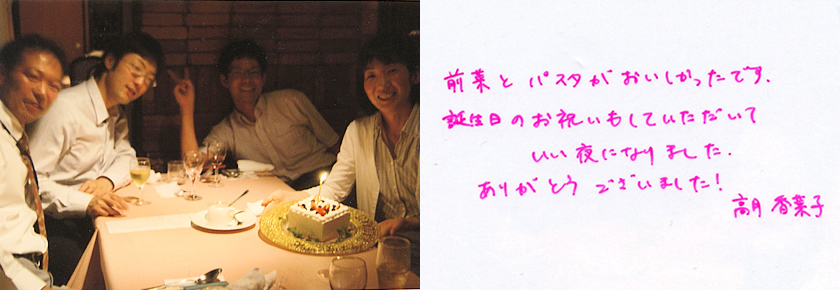 前菜と パスタがおいしかったです.
誕生日のお祝いもしていただいて
いい夜になりました.
ありがとう ございました!
高月 香菜子